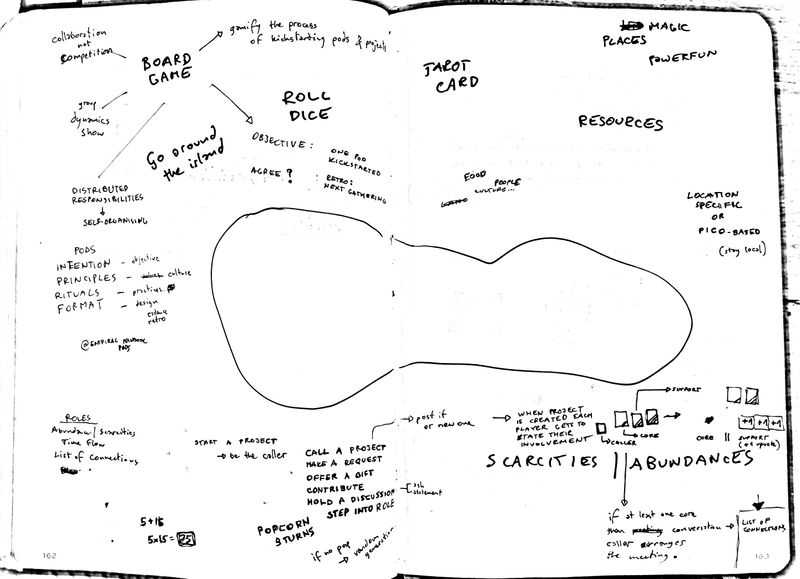 collaboration
not
competition
BOARD
GAME
gamify the process
of kickstarting pods & projects
dynamics
show
Go around
the island
ROLL
DICE
OBJECTIVE:
ONE POD
KICKSTARTED
AGREE?
RETRO:
NEXT GATHERING
DISTRIBUTED
RESPONSIBILITIES
SELF-ORGANISING
PODS
INTENTION - objective
PRINCIPLES - culture
RITUALS - practices
FORMAT - design
retro
PODS
ROLES
Abundance/Scarcities
Time Flow
List of Connections
START A PROJECT
be the caller
5+15
5x15=75
162
CALL A PROJECT
MAKE A REQUEST
OFFER A GIFT
CONTRIBUTE
HOLD A DISCUSSION
STEP INTO ROLE
ask
statement
POPCORN
3 TURNS
if no pop
random
generation
MAGIC
PLACES
POWERFUN
TAROT
CARD
RESOURCES
FOOD
PEOPLE
CULTURE...
LOCATION
SPECIFIC
OR
PICO-BASED
(stay local)
post it
or new one
WHEN PROJECT
IS CREATED EACH
PLAYER GETS TO
STATE THEIR
INVOLVEMENT
CALLER
CORE
SUPPORT
+1 +1 +1
CORE || SUPPORT
SCARCITIES || ABUNDANCES
if at least one core
than conversation
caller arranges
the meeting.
LIST OF
CONNECTIONS
163